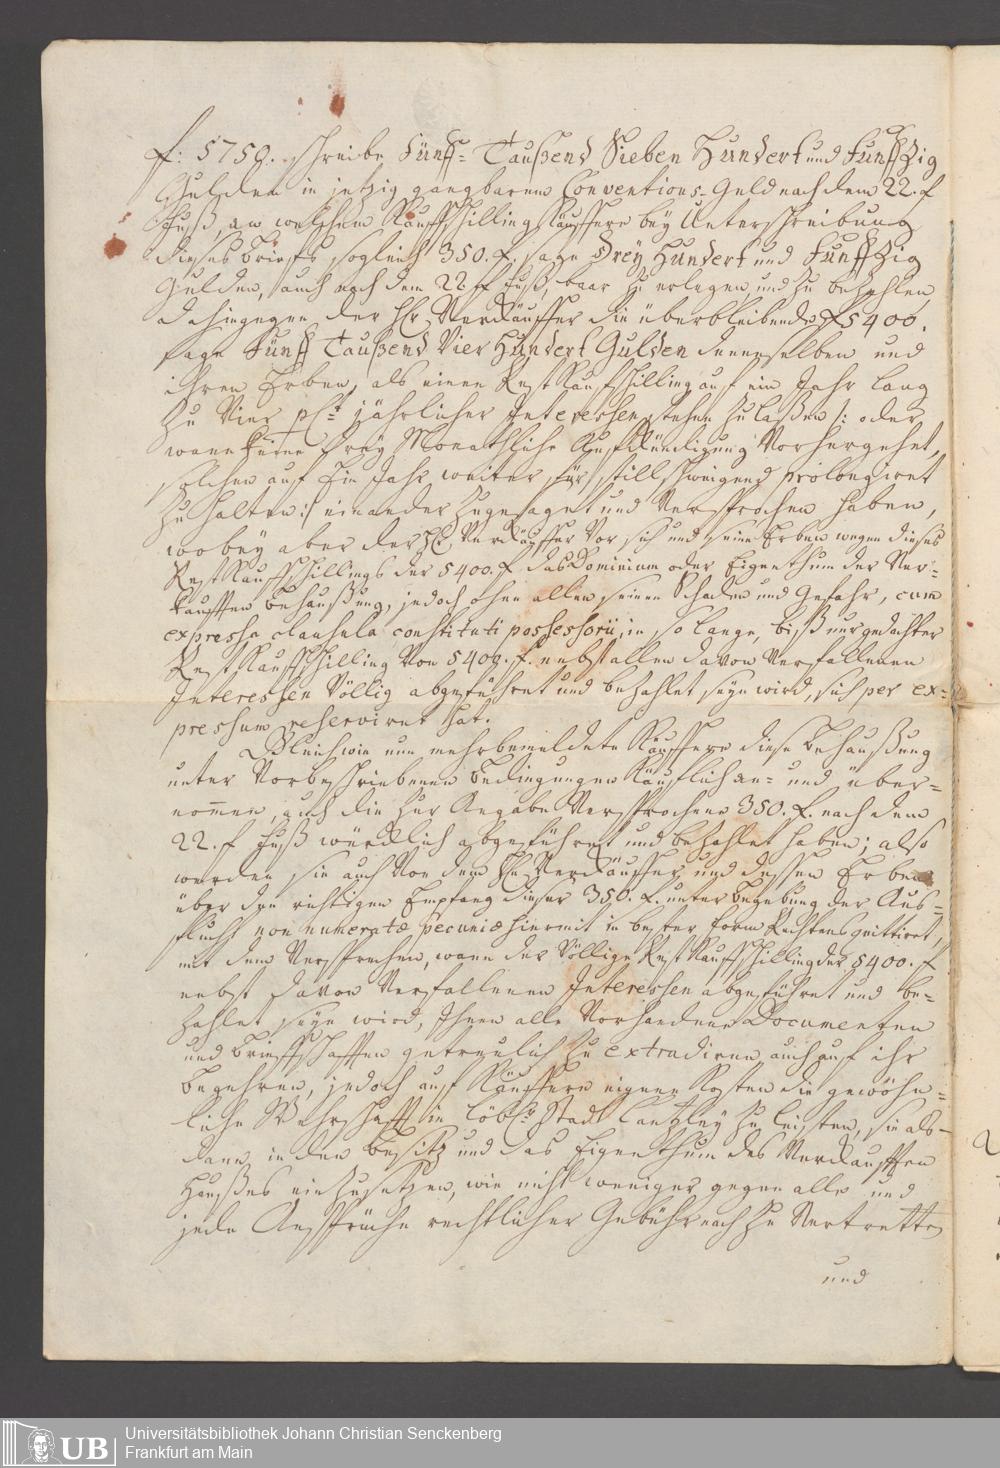 f: 5750. schreibe Fünff- Taußend Sieben Hundert und Funffzig
Gulden in jetzig gangbarem Conventions-Geld nach dem 22. f
Fuß, an welchem Kauffschilling Käuffere bey Unterschreibung
dieses Briefs sogleich 350. f. sage Drey Hundert und Funffzig
Gulden, auch nach dem 22 f Fuß, baar zu erlegen, und zu bezahlen,
dahingegen der Hr. Verkäuffer die überbleibende f 5400.
sage Fünff Taußend Vier Hundert Gulden denenselben und
ihren Erben, als einen Rest Kaufschilling auf ein Jahr lang
zu Vier pCt. jährlicher Interessen stehen zu laßen /: oder
wann keine drey Monathliche Aufkündigung Vorhergehet,
solchen auf Ein Jahr weiter für stillschweigend prolongiret
zu halten :/ einander zugesaget und Versprochen haben,
wobey aber der Hr. Verkäuffer Vor sich und seine Erben wegen dieses
Rest Kauffschillings der 5400. f. das Dominium oder Eigenthum der Ver-
kaufften Behaußung, jedoch ohne allen seinen Schaden und Gefahr, cum
expressa clausula constituti possessorii, in so lange, biß nurgedachter
Rest Kauffschilling Von 5400. f. nebst allen davon Verfallenen
Interessen Völlig abgeführet und bezahlet seyn wird, sich per ex-
pressum reserviret hat.
Gleichwie nun mehrbemeldete Käuffere diese Behaußung
unter Vorbeschriebenen Bedingungen Käuflich an- und über-
nommen, auch die zur Angabe Versprochene 350. f. nach dem
22. f Fuß würcklich abgeführet und bezahlet haben; also
werden sie auch Von dem Hr. Verkäuffer und dessen Erben
über den richtigen Empfang dieser 350. f. unter Begebung der Aus-
flucht non numeratæ pecuniæ hiermit in bester Form Rechtens quittiret,
mit dem Versprechen, wann der Völlige Rest Kauffschilling der 5400. f
nebst davon Verfallenen Interessen abgeführet und be-
zahlet seyn wird, Ihnen alle Vorhandene Documenten
und Brieffschafften getreulich zu extradiren, auch auf ihr
Begehren, jedoch auf Käuffere eigene Kosten die gewöhn-
liche Währschafft in Löbl. Stadt Cantzley zu leisten, sie als-
dann in den Besitz und das Eigenthum des Verkaufften
Haußes einzusetzen, wie nicht weniger gegen alle und
jede Ansprüche rechtlicher Gebühr nach zu Vertretten
und
UB
Universitätsbibliothek Johann Christian Senckenberg
Frankfurt am Main